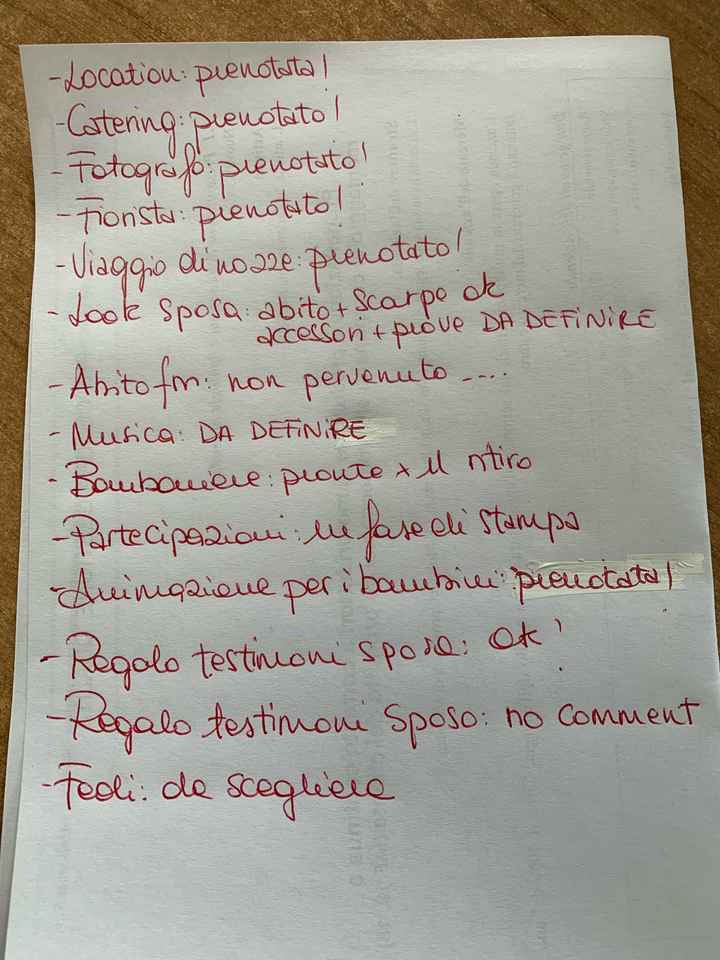 - Location: prenotata!
- Catering: prenotato!
- Fotografo: prenotato!
- Fiorista: prenotato!
- Viaggio di nozze: prenotato!
- Look sposa: abito + scarpe ok
accessori + prove DA DEFINIRE
- Abito fm: non pervenuto ....
- Musica: DA DEFINIRE
- Bomboniere: pronte x il ritiro
- Partecipazioni: in fase di stampa
- Animazione per i bambini: prenotata!
- Regalo testimoni sposa: ok!
- Regalo testimoni sposo: no comment
- Fedi: da scegliere